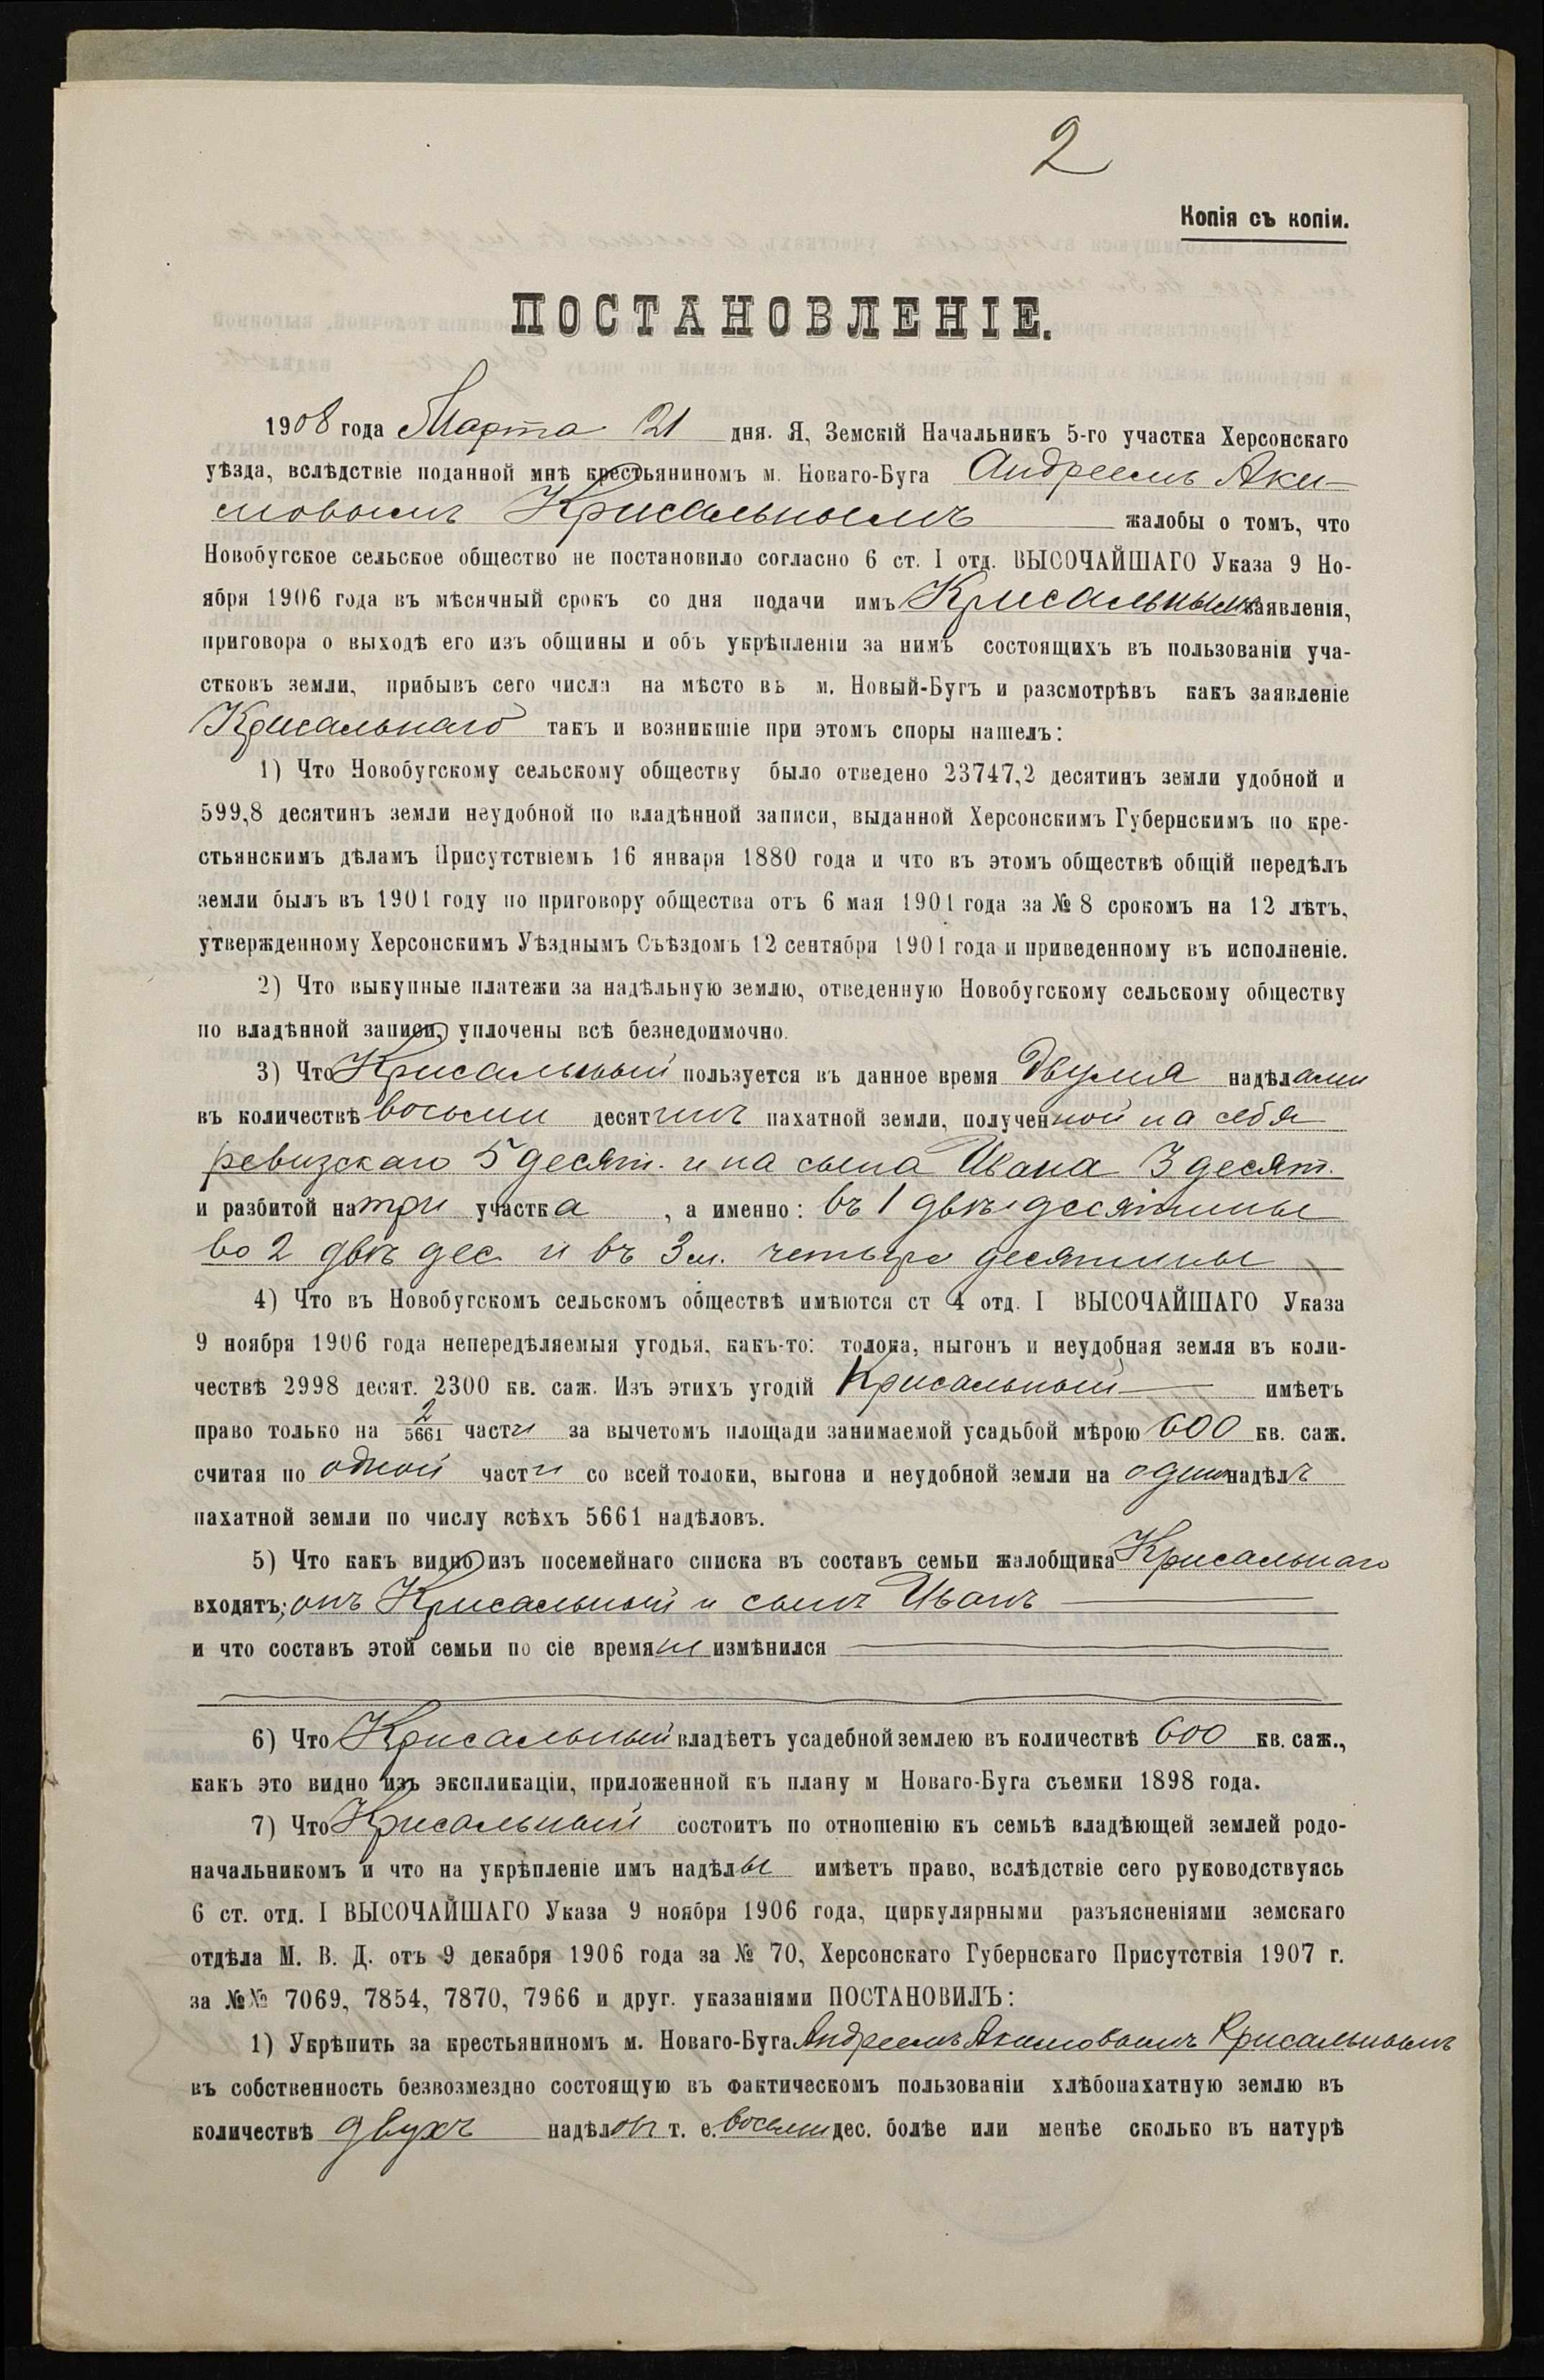 2
Копія съ копіи.
ПОСТАНОВЛЕНІЕ.
1908 года Марта 21 дня. Я, Земскій Начальникъ 5-го участка Херсонскаго
уѣзда, вслѣдствіе поданной мнѣ крестьяниномъ м. Новаго-Буга Андреемъ Аки-
мовымъ Крисальнымъ жалобы о томъ, что
Новобугское сельское общество не постановило согласно 6 ст. I отд. ВЫСОЧАЙШАГО Указа 9 Но-
ября 1906 года въ мѣсячный срокъ со дня подачи имъ Крисальнымъ заявленія,
приговора о выходѣ его изъ общины и объ укрѣпленіи за нимъ состоящихъ въ пользованіи уча-
стковъ земли, прибывъ сего числа на мѣсто въ м. Новый-Бугъ и разсмотрѣвъ какъ заявленіе
Крисальнаго такъ и возникшіе при этомъ споры нашелъ:
1) Что Новобугскому сельскому обществу было отведено 23747,2 десятинъ земли удобной и
599,8 десятинъ земли неудобной по владѣнной записи, выданной Херсонскимъ Губернскимъ по кре-
стьянскимъ дѣламъ Присутствіемъ 16 января 1880 года и что въ этомъ обществѣ общій передѣлъ
земли былъ въ 1901 году по приговору общества отъ 6 мая 1901 года за № 8 срокомъ на 12 лѣтъ,
утвержденному Херсонскимъ Уѣзднымъ Съѣздомъ 12 сентября 1901 года и приведенному въ исполненіе.
2) Что выкупные платежи за надѣльную землю, отведенную Новобугскому сельскому обществу
по владѣнной записи, уплочены всѣ безнедоимочно.
3) Что Крисальный пользуется въ данное время двумя надѣлами
въ количествѣ восьми десятинъ пахатной земли, полученной на себя
ревизскаго 5 десят. и на сына Ивана 3 десят.
и разбитой на три участка, а именно: въ 1 двѣ десятины
во 2 двѣ дес. и въ 3 м. четыре десятины
4) Что въ Новобугскомъ сельскомъ обществѣ имѣются ст 4 отд. I ВЫСОЧАЙШАГО Указа
9 ноября 1906 года непередѣляемыя угодья, какъ-то: толока, ныгонъ и неудобная земля въ коли-
чествѣ 2998 десят. 2300 кв. саж. Изъ этихъ угодій Крисальный имѣетъ
право только на 2/5661 части за вычетомъ площади занимаемой усадьбой мѣрою 600 кв. саж.
считая по одной части со всей толоки, выгона и неудобной земли на одинъ надѣлъ
пахатной земли по числу всѣхъ 5661 надѣловъ.
5) Что какъ видно изъ посемейнаго списка въ составъ семьи жалобщика Крисальнаго
входятъ: онъ Крисальный и сынъ Иванъ
и что составъ этой семьи по сіе время не измѣнился
6) Что Крисальный владѣетъ усадебной землею въ количествѣ 600 кв. саж.,
какъ это видно изъ экспликаціи, приложенной къ плану м Новаго-Буга съемки 1898 года.
7) Что Крисальный состоитъ по отношенію къ семьѣ владѣющей землей родо-
начальникомъ и что на укрѣпленіе имъ надѣлы имѣетъ право, вслѣдствіе сего руководствуясь
6 ст. отд. I ВЫСОЧАЙШАГО Указа 9 ноября 1906 года, циркулярными разъясненіями земскаго
отдѣла М. В. Д. отъ 9 декабря 1906 года за № 70, Херсонскаго Губернскаго Присутствія 1907 г.
за №№ 7069, 7854, 7870, 7966 и друг. указаніями ПОСТАНОВИЛЪ:
1) Укрѣпить за крестьяниномъ м. Новаго-Буга Андреемъ Акимовымъ Крисальнымъ
въ собственность безвозмездно состоящую въ фактическомъ пользованіи хлѣбопахатную землю въ
количествѣ двухъ надѣловъ т. е. восьми дес. болѣе или менѣе сколько въ натурѣ